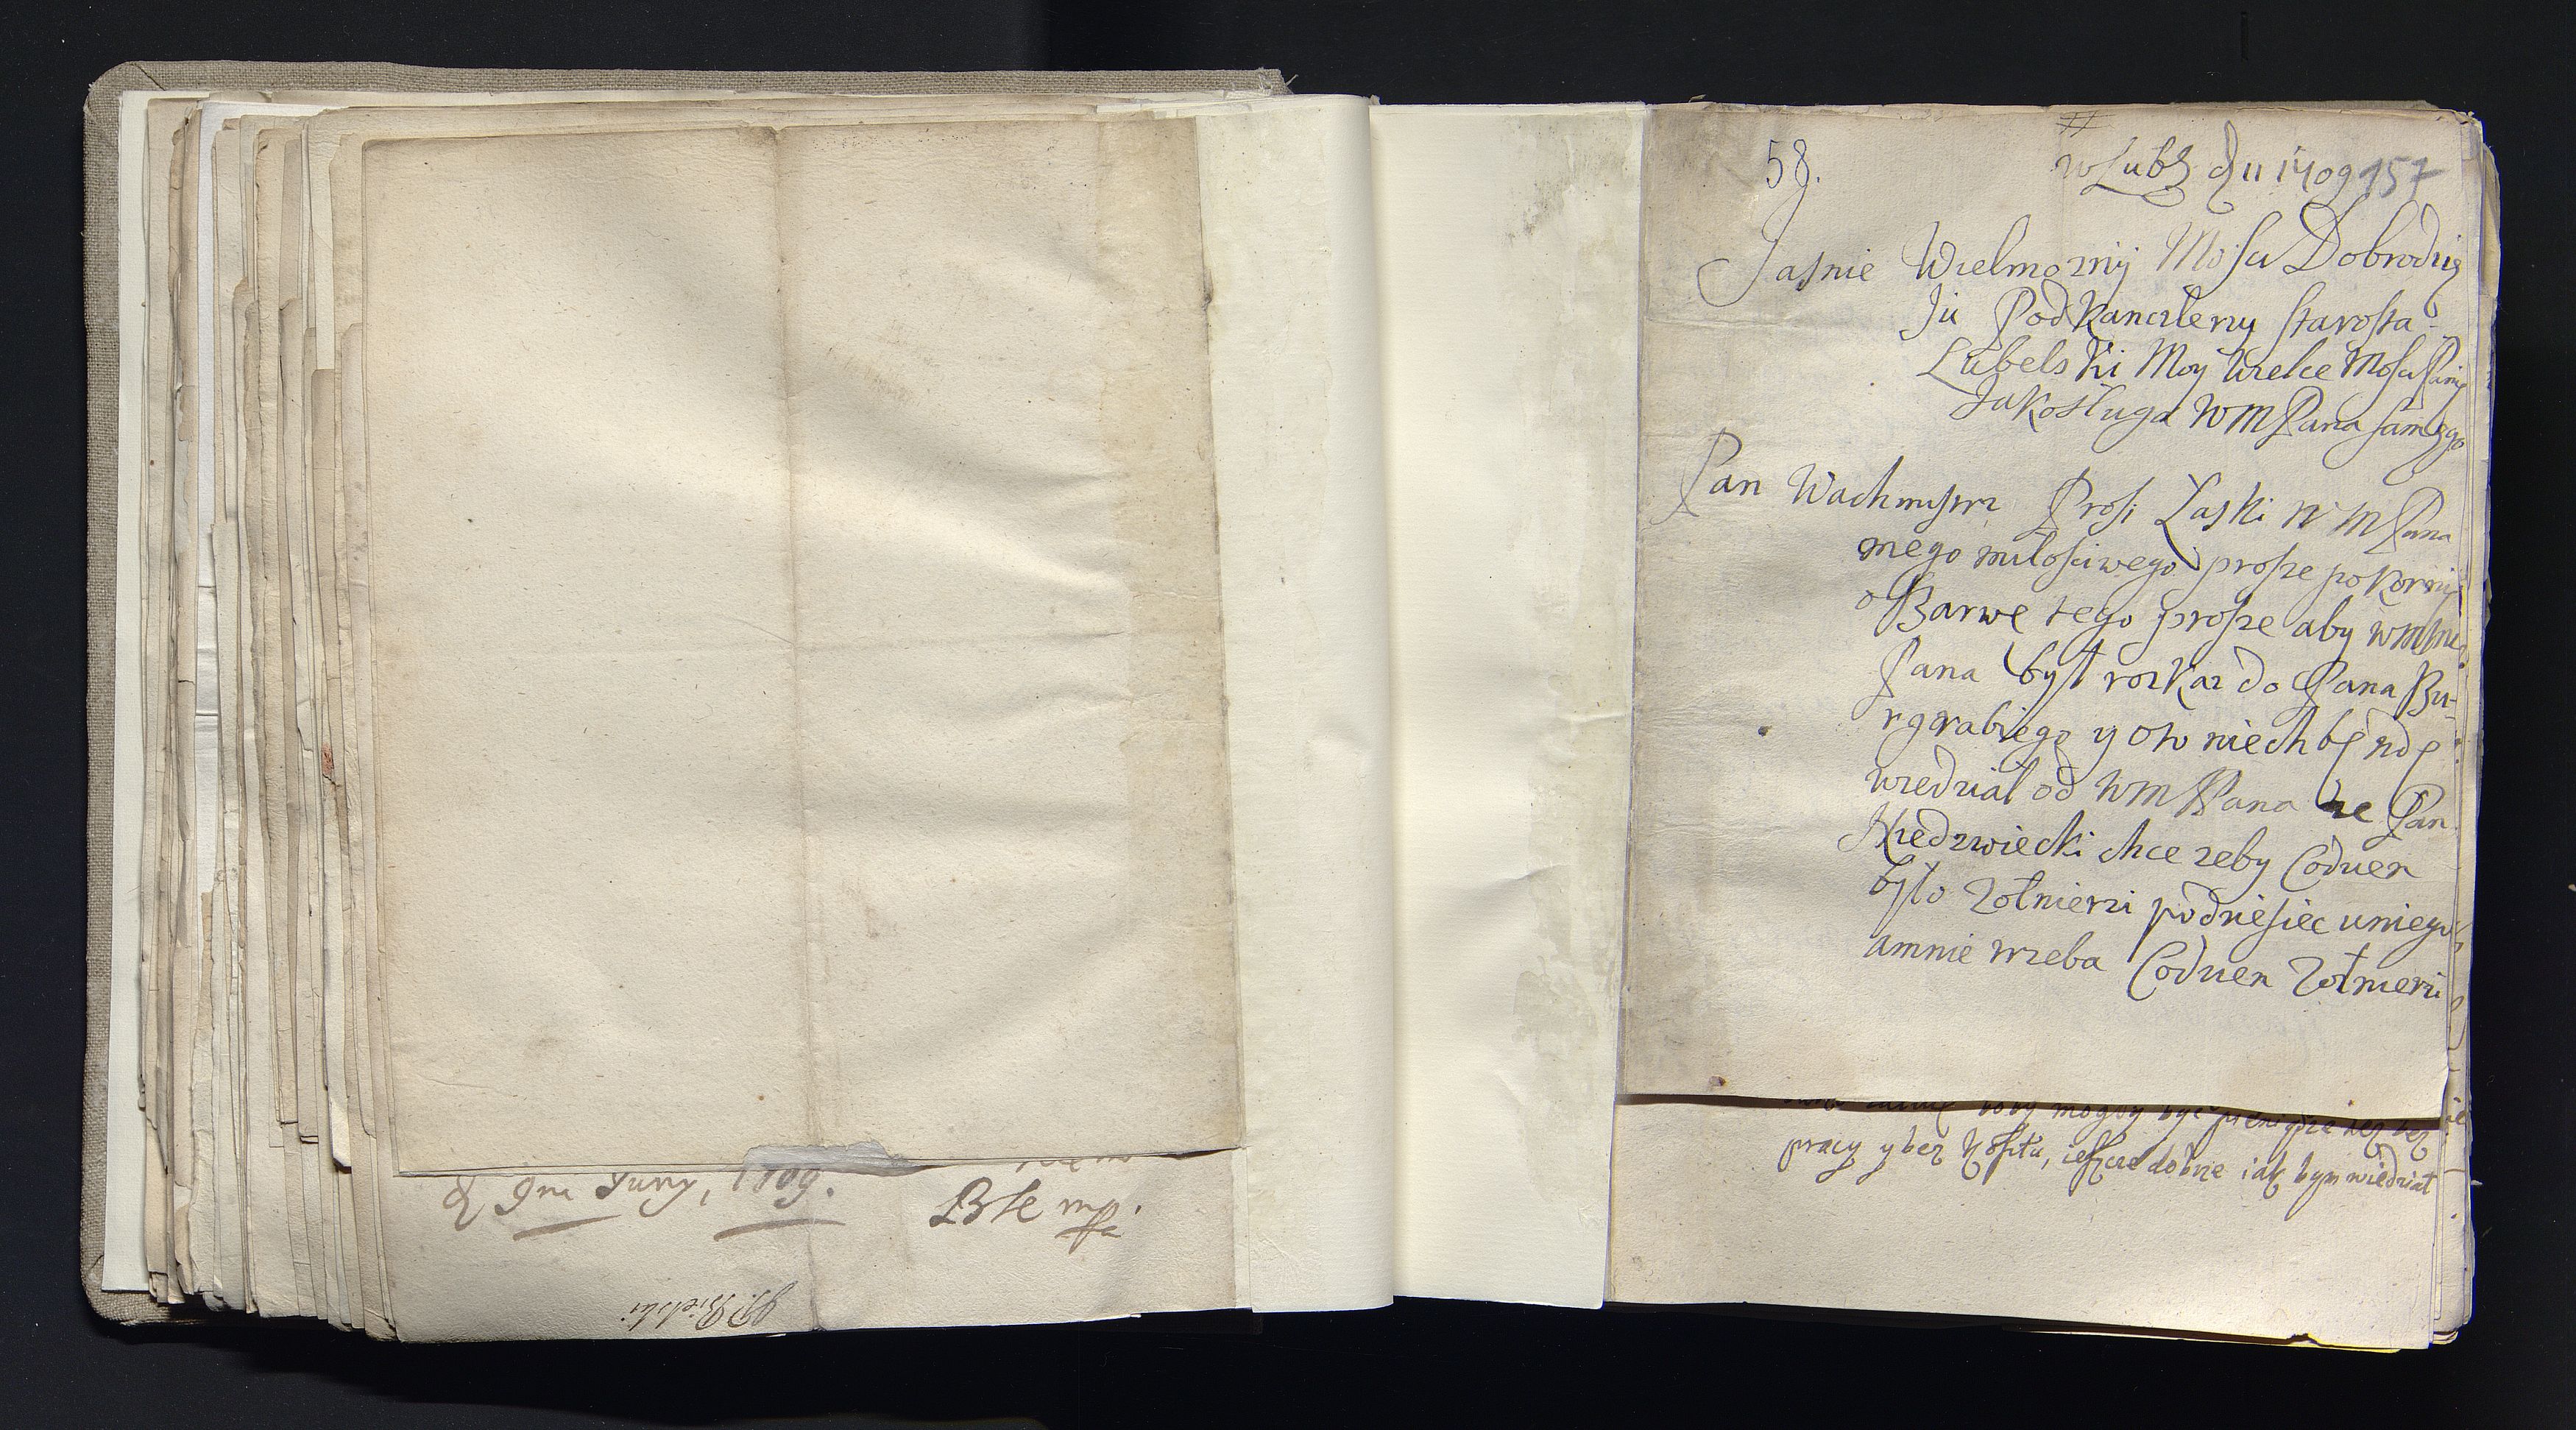 9na Juny, 1709.
BSE mpa
58.
w Lubl d 11 1709 157
Jasnie Wielmozny Mosci Dobrodzie
Ju Podkanclerzy starosta
Lubelski Moy wielce Mosci Panie
Jako sługa WM Pana samego
Pan Wachmystrz Prosi Łaski WM Pana
mego miłosciwego prosze pokornie
o Barwe tego prosze aby wm me
Pana był roskaz do Pana Bu-
rgrabiego y on niech będę
wiedział od WM Pana ze Pan
Niedzwiecki chce zeby Codzien
było Zołnierzi podziesiec uniego
amnie trzeba Codzien Zołnierzi
mogły być pieniądze też bez
pracy y bez Kosztu, ieszcze dobrze iak bym wiedział